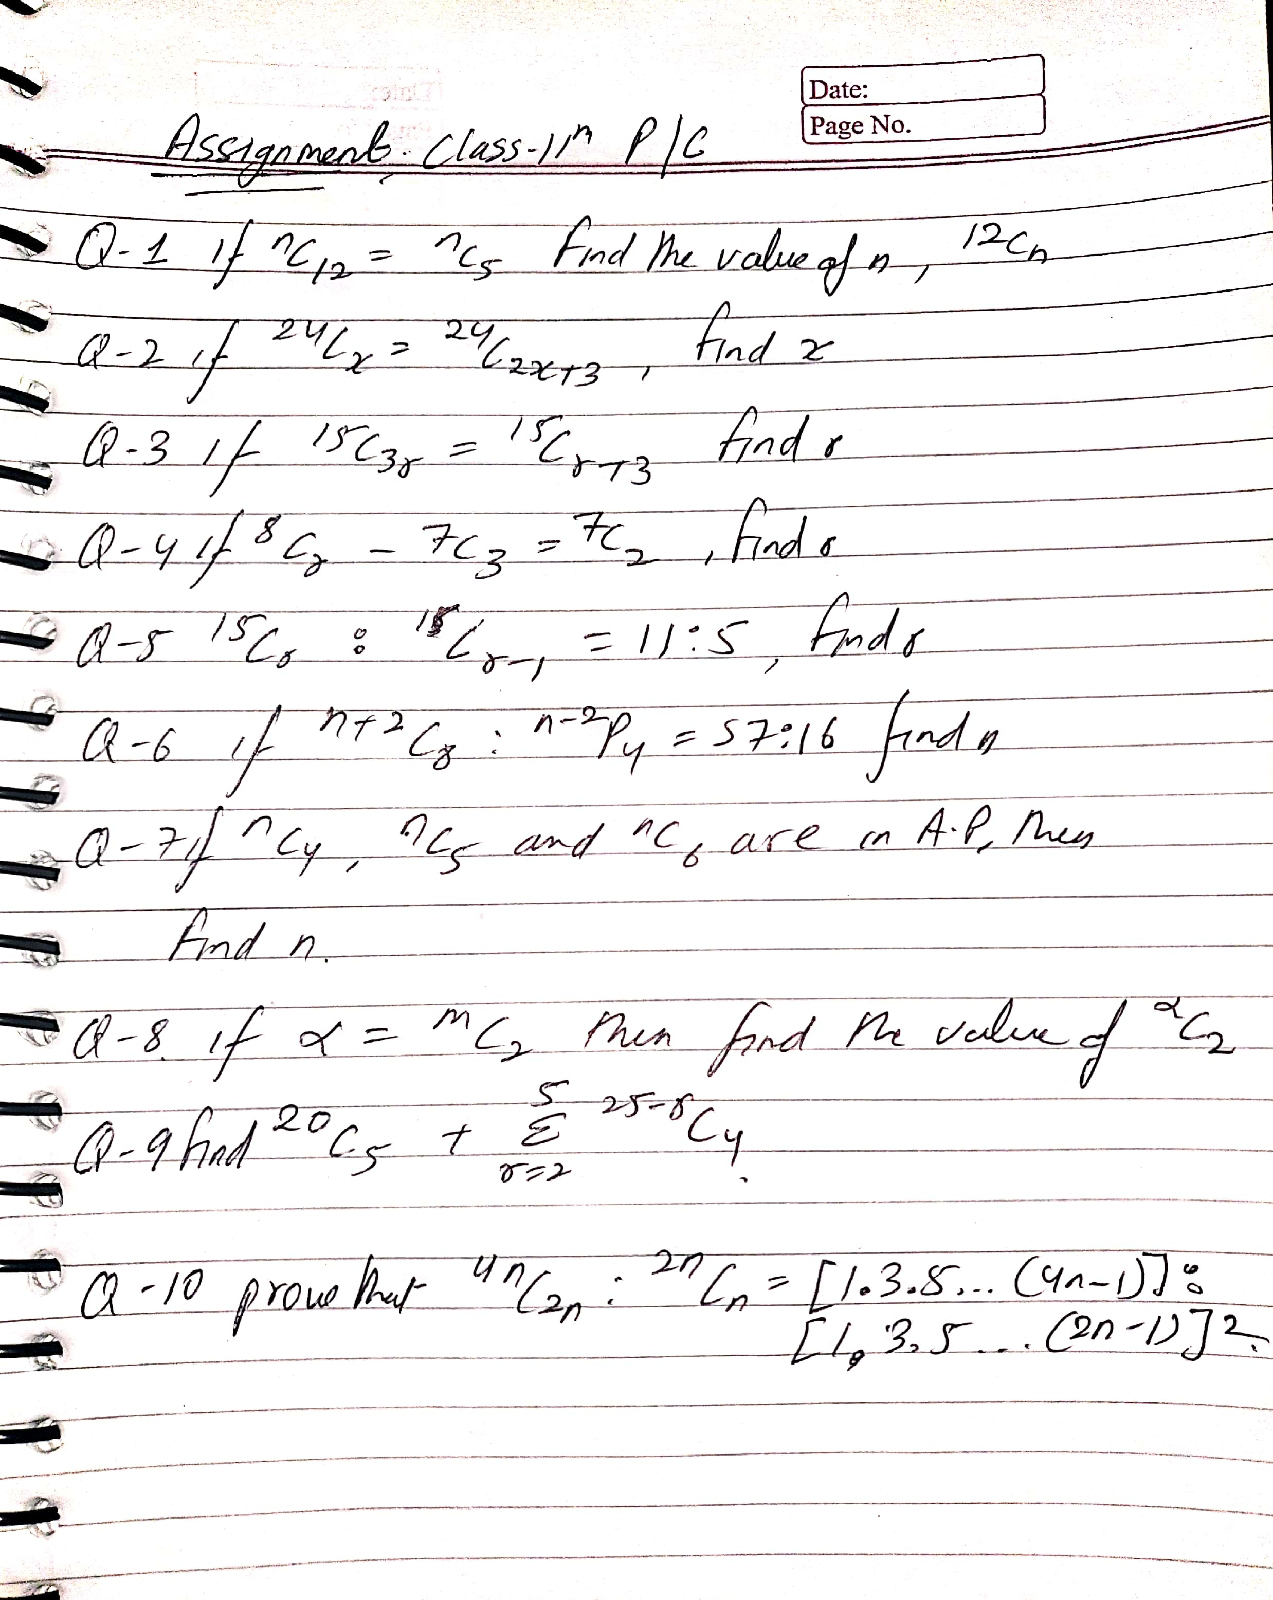 Date:
Page No.
Assignment. Class-11th P/C
Q-1 If ⁿC₁₂ = ⁿC₅ find the value of n, ¹²Cₙ
Q-2 if ²⁴Cₓ = ²⁴C₂ₓ₊₃, find x
Q-3 if ¹⁵C₃ᵣ = ¹⁵Cᵣ₊₃ find r
Q-4 if ⁸Cᵣ - ⁷C₃ = ⁷C₂, find r
Q-5 ¹⁵Cᵣ : ¹⁵Cᵣ₋₁ = 11:5, find r
Q-6 if ⁿ⁺²C₈ : ⁿ⁻²P₄ = 57:16 find n
Q-7 if ⁿC₄, ⁿC₅ and ⁿC₆ are in A.P, then
find n.
Q-8. if α = ᵐC₂ then find the value of ᵅC₂
Q-9 find ²⁰C₅ + ⁵Σᵣ₌₂ ²⁵⁻ʳC₄.
Q-10 prove that ⁴ⁿC₂ₙ : ²ⁿCₙ = [1.3.5... (4n-1)] :
[1, 3, 5 ... (2n-1)]².